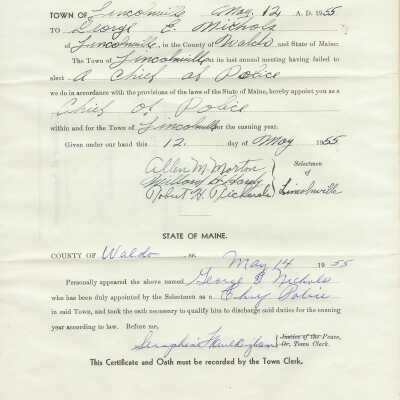 TOWN OF Lincolnville May, 12 A. D. 1955
TO George E. Nichols
of Lincolnville, in the County of Waldo and State of Maine:
The Town of Lincolnville at its last annual meeting having failed to
elect A Chief of Police
we do in accordance with the provisions of the laws of the State of Maine, hereby appoint you as a
Chief of Police
within and for the Town of Lincolnville for the ensuing year.
Given under our hand this 12. day of May 1955
Allen M. Morton
Hardy
Robert H. Richards
Selectmen
of
Lincolnville
STATE OF MAINE.
COUNTY OF Waldo ss. May 14 1955
Personally appeared the above named George E Nichols
who has been duly appointed by the Selectmen as a Chief Police
in said Town, and took the oath necessary to qualify him to discharge said duties for the ensuing
year according to law. Before me,
Justice of the Peace,
Or, Town Clerk.
This Certificate and Oath must be recorded by the Town Clerk.